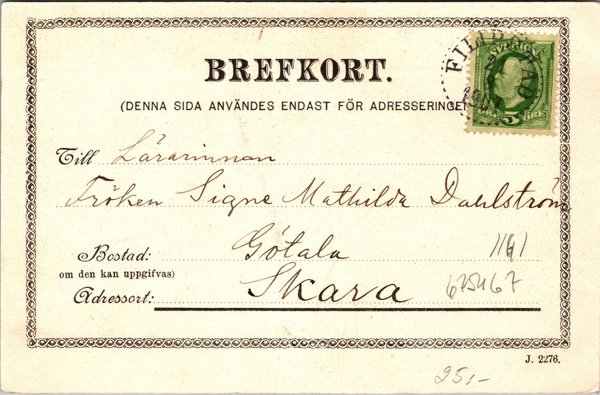 BREFKORT.
(DENNA SIDA ANVÄNDES ENDAST FÖR ADRESSERINGE
SVERIGE
FILIPSTAD
5 ÖRE
Till Lärarinnan
Fröken Signe Mathilda Dahlström
Bostad: Götala
om den kan uppgifvas)
Adressort: Skara
675467
J. 2276.
25,-